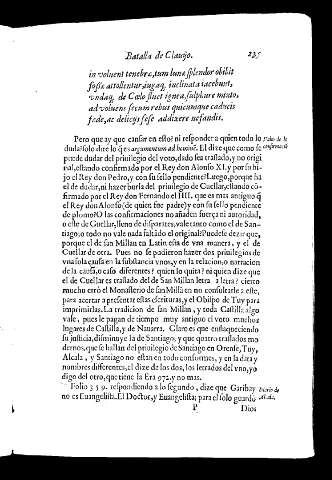 Batalla de Clauijo. 235
in voluent tenebræ, tum lunæ splendor obibit
fossæ attollentur, iugaq, inclinata iacebunt,
vndaq, de Cœlo fluet ignea, sulphure misto,
ad voluens secum rebus quicumque caducis
fæde, ac delicijs sese addixere nefandis.
Pero que ay que cansar en esto? ni responder a quien todo lo
duda? solo diré lo q es argumentum ad hominē. El dize que como se
puede dudar del priuilegio del voto, dado sea traslado, y no origi
nal, estando confirmado por el Rey don Alonso XI. y por su hi-
jo el Rey don Pedro, y con su sello pendiente? Luego, porque ha
el de dudar, ni hazer burla del priuilegio de Cuellar, estando cō-
firmado por el Rey don Fernando el IIII. que es mas antiguo q̄
el Rey don Alonso (de quien fue padre) y con su sello pendiente
de plomo? O las confirmaciones no añaden fuerça ni autoridad,
o esse de Cuellar, lleno de disparates, vale tanto como el de San-
tiago, o todo no vale nada faltado el original? Puedese dezir que,
porque el de san Millan en Latin està de vna manera, y el de
Cuellar de otra. Pues no se pudieron hazer dos priuilegios de
vna sola causa en la substancia vnos, y en la relacion, o narracion
de la causa, o caso diferentes? quien lo quita? ni quien dize que
el de Cuellar es traslado del de San Millan letra a letra? cierto
mucho erró el Monasterio de san Millā en no consultarle a este,
para acertar a presentar estas escrituras, y el Obispo de Tuy para
imprimirlas. La tradicion de san Millan, y toda Castilla algo
vale, pues le pagan de tiempo muy antiguo el voto muchos
lugares de Castilla, y de Nauarra. Claro es que enflaqueciendo
su justicia, disminuye la de Santiago, y que quatro traslados mo
dernos, que se hallan del priuilegio de Santiago en Orense, Tuy,
Alcala, y Santiago no estan en todo conformes, y en la data y
nombres diferentes, el dize de los dos, los letrados del vno, yo
digo del otro, que tiene la Era 972. y no mas.
Folio 359. respondiendo a lo segundo, dize que Garibay
no es Euangelista. El Doctor, y Euangelista; para el solo guardò
P Dios